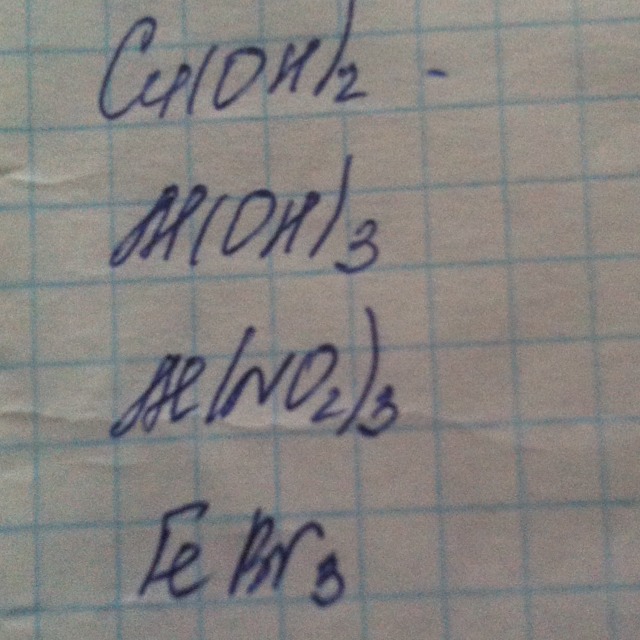 Cu(OH)₂ -
Al(OH)₃
Al(NO₂)₃
FeBr₃